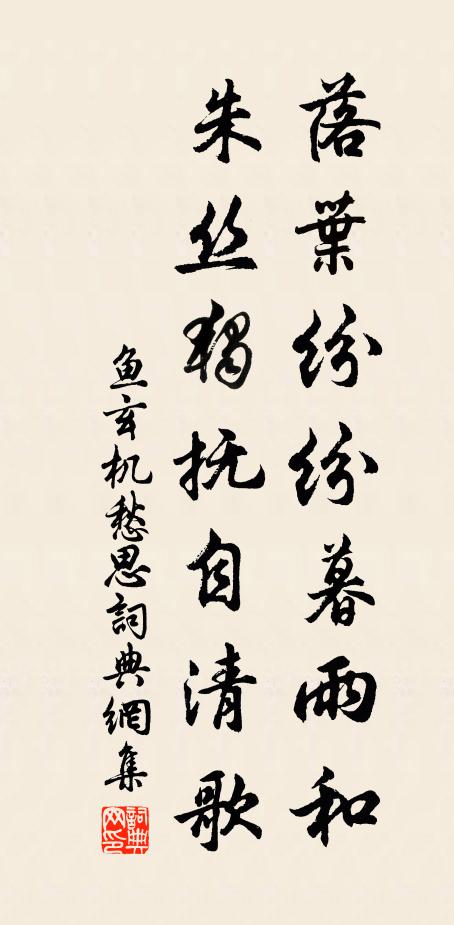 落葉紛紛暮雨和
朱丝獨抚自清歌
鱼玄机愁思詞典網集
詞典网印